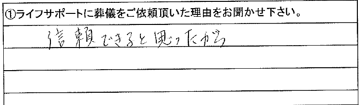 ①ライフサポートに葬儀をご依頼頂いた理由をお聞かせ下さい。
信頼できると思ったから